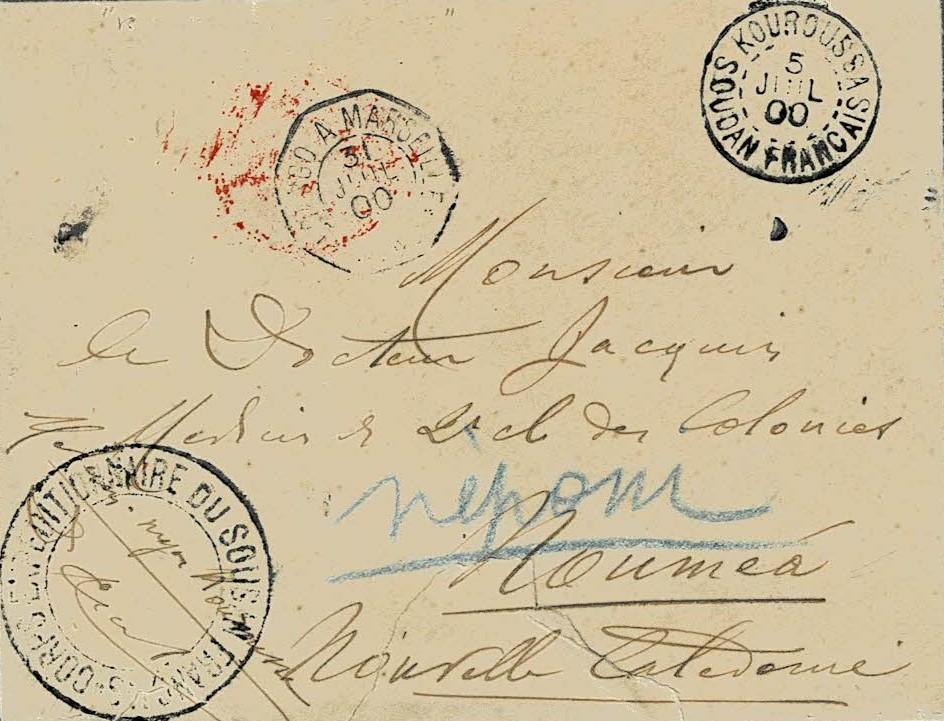 KOUROUSSA
5
JUIL
00
SOUDAN FRANCAIS
A MARSEILLE
31
JUIL
00
Monsieur
le Docteur Jacquin
Médecin de 2e cl des Colonies
Nouméa
Nouvelle Calédonie
CORPS EXPEDITIONNAIRE DU SOUDAN FRANCAIS